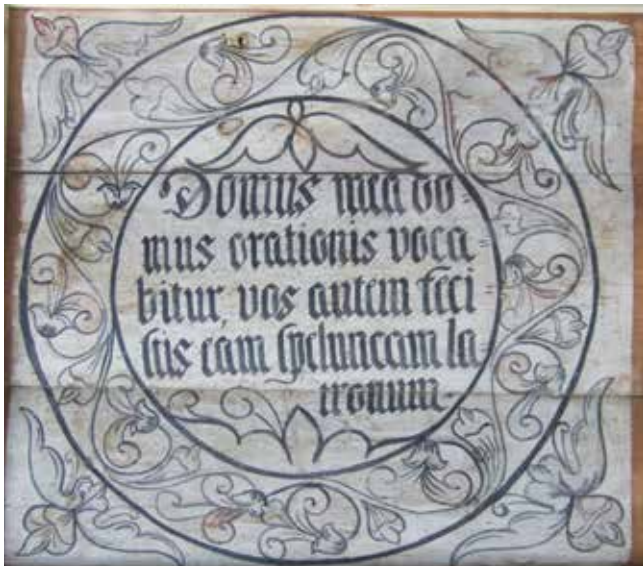 Domus mea do=
mus orationis voca=
bitur, vos autem feci
stis eam speluncam la
tronum.